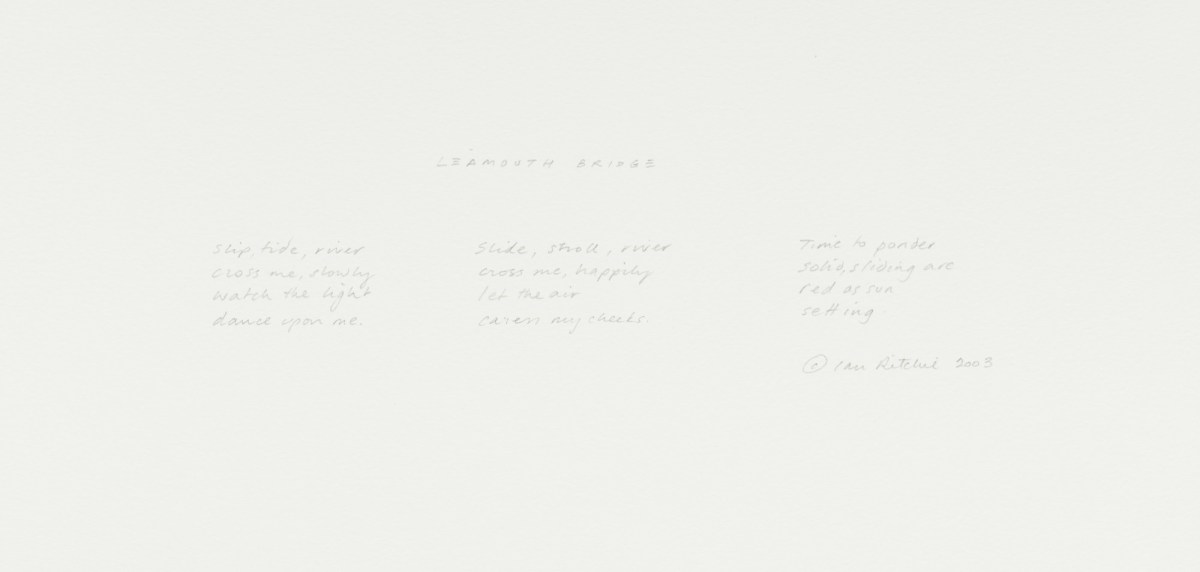 LEAMOUTH BRIDGE
Slip, tide, river
cross me, slowly
watch the light
dance upon me.
Slide, stroll, river
cross me, happily
let the air
caress my cheeks.
Time to ponder
solid, sliding arc
red as sun
setting
© Ian Ritchie 2003